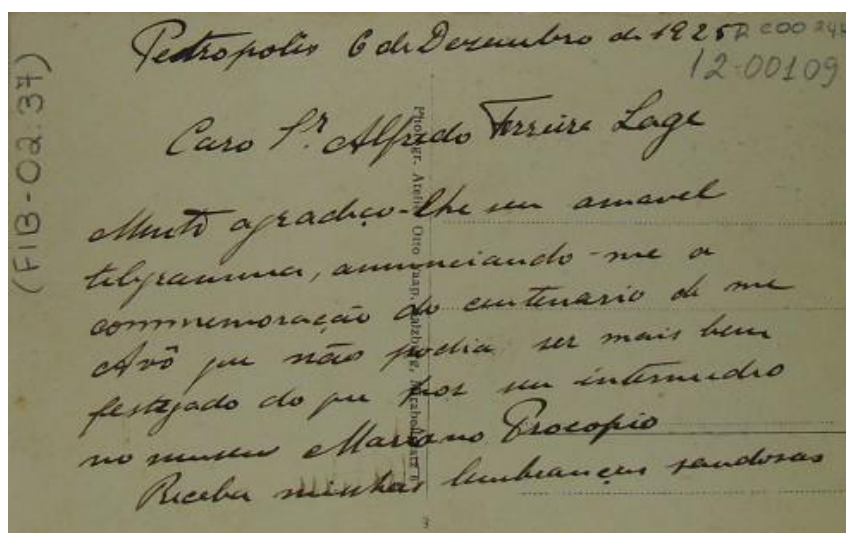 Petropolis 6 de Dezembro de 1925
12-00109
(FIB-02.37)
Caro Sr. Alfredo Ferreira Lage
Muito agradeço-lhe seu amavel
telegramma, annunciando-me a
commemoração do centenario de meu
Avô que não podia ser mais bem
festejado do que por seu intermedio
no museu Mariano Procopio
Receba minhas lembranças saudosas
Photogr. Atelier Otto Salzburg, Mirabellplatz